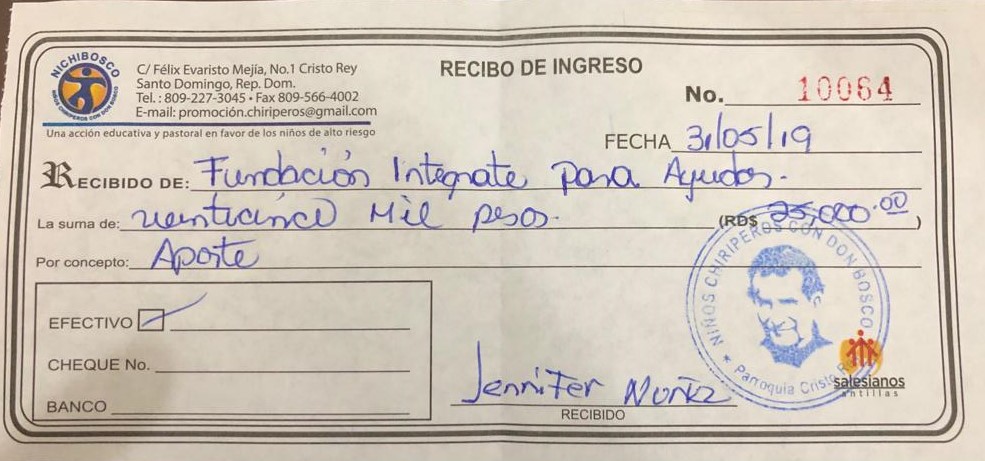 NICHIBOSCO
NIÑOS CHIRIPEROS CON DON BOSCO
C/ Félix Evaristo Mejía, No.1 Cristo Rey
Santo Domingo, Rep. Dom.
Tel. : 809-227-3045 • Fax 809-566-4002
E-mail: promoción.chiriperos@gmail.com
Una acción educativa y pastoral en favor de los niños de alto riesgo
RECIBO DE INGRESO
No. 10064
FECHA 31/05/19
RECIBIDO DE: Fundación Integrate para Ayudar.
La suma de: veinticinco Mil pesos. (RD$ 25,000.00)
Por concepto: Aporte
EFECTIVO
CHEQUE No.
BANCO
Jennifer Nuñez
RECIBIDO
NIÑOS CHIRIPEROS CON DON BOSCO
Parroquia Cristo
salesianos
antillas